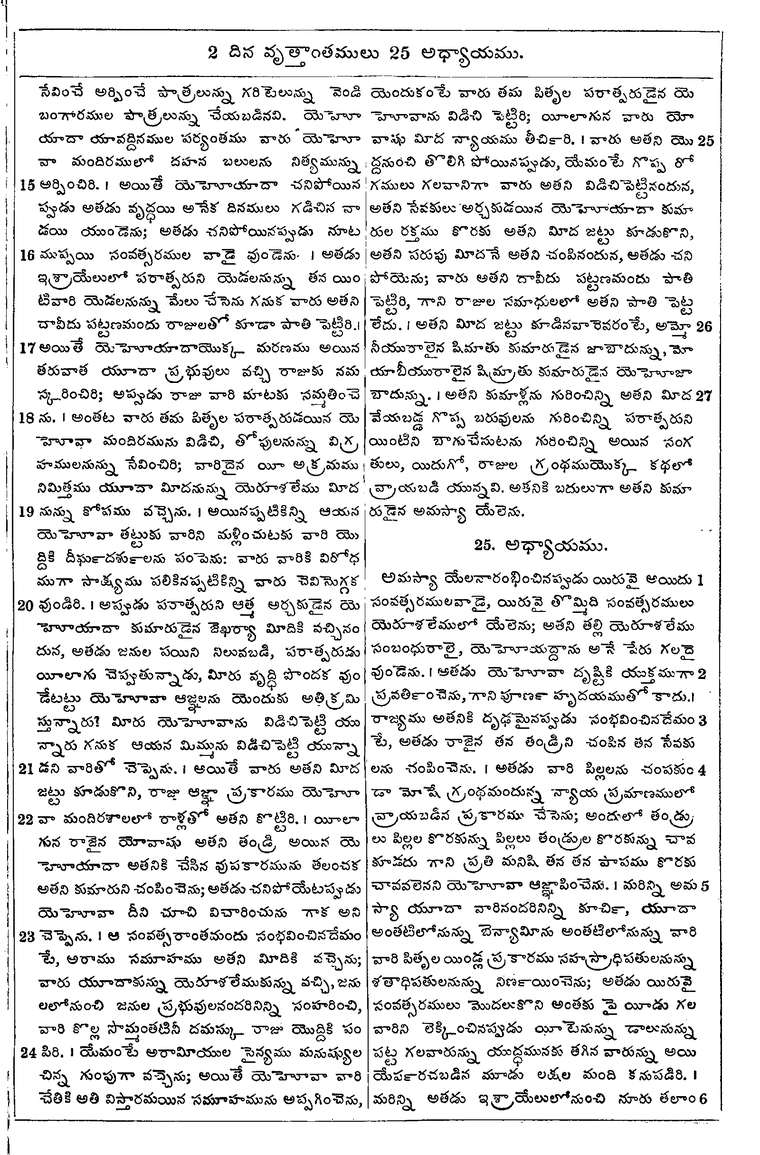 2 దిన వృత్తాంతములు 25 అధ్యాయము.
సేవించే అర్పించే పాత్రలున్ను గరిటెలున్ను వెండి
బంగారముల పాత్రలున్ను చేయబడినవి. యెహో
యాదా యావద్దినముల పర్యంతము వారు యెహో
వా మందిరములో దహన బలులను నిత్యమున్ను
15 అర్పించిరి. । అయితే యెహోయాదా చనిపోయిన
ప్పుడు అతడు వృద్ధయి అనేక దినములు గడిచిన నా
డయి యుండెను; అతడు చనిపోయినప్పుడు నూట
16 ముప్పయి సంవత్సరముల వాడై వుండెను. । అతడు
ఇశ్రాయేలులో పరాత్పరుని యెడలనున్ను తన యిం
టివారి యెడలనున్ను మేలు చేసెను గనుక వారు అతని
దావీదు పట్టణమందు రాజులతో కూడా పాతి పెట్టిరి. ।
17 అయితే యెహోయాదాయొక్క మరణము అయిన
తరువాత యూదా ప్రభువులు వచ్చి రాజుకు నమ
స్కరించిరి; అప్పుడు రాజు వారి మాటకు సమ్మతించె
18 ను. । అంతట వారు తమ పితృల పరాత్పరుడయిన యె
హోవా మందిరమును విడిచి, తోపులనున్ను విగ్ర
హములనున్ను సేవించిరి; వారిదైన యీ అక్రమము
నిమిత్తము యూదా మీదనున్ను యెరూశలేము మీద
19 నున్ను కోపము వచ్చెను. । అయినప్పటికిన్ని ఆయన
యెహోవా తట్టుకు వారిని మళ్లించుటకు వారి యొ
ద్దికి దీర్ఘదర్శులను పంపెను: వారు వారికి విరోధ
ముగా సాక్ష్యము పలికినప్పటికిన్ని వారు చెవియొగ్గక
20 వుండిరి. । అప్పుడు పరాత్పరుని ఆత్మ అర్చకుడైన యె
హోయాదా కుమారుడైన జెఖర్యా మీదికి వచ్చినం
దున, అతడు జనుల పయిని నిలువబడి, పరాత్పరుడు
యీలాగు చెప్పుతున్నాడు, మీరు వృద్ధి పొందక వుం
డేటట్టు యెహోవా ఆజ్ఞలను యెందుకు అతిక్రమి
స్తున్నారు? మీరు యెహోవాను విడిచిపెట్టి యు
న్నారు గనుక ఆయన మిమ్మును విడిచిపెట్టి యున్నా
21 డని వారితో చెప్పెను. । అయితే వారు అతని మీద
జట్టు కూడుకొని, రాజు ఆజ్ఞా ప్రకారము యెహో
22 వా మందిరశాలలో రాళ్లతో అతని కొట్టిరి. । యీలా
గున రాజైన యోవాషు అతని తండ్రి అయిన యె
హోయాదా అతనికి చేసిన వుపకారమును తలంచక
అతని కుమారుని చంపించెను; అతడు చనిపోయేటప్పుడు
యెహోవా దీని చూచి విచారించును గాక అని
23 చెప్పెను. । ఆ సంవత్సరాంతమందు సంభవించినదేమం
టే, అరాము సమూహము అతని మీదికి వచ్చెను;
వారు యూదాకున్ను యెరూశలేముకున్ను వచ్చి, జను
లలోనుంచి జనుల ప్రభువులనందరినిన్ని సంహరించి,
వారి కొల్ల సొమ్మంతటినీ దమస్కు రాజు యొద్దికి పం
24 పిరి. । యేమంటే అరామీయుల సైన్యము మనుష్యుల
చిన్న గుంపుగా వచ్చెను; అయితే యెహోవా వారి
చేతికి అతి విస్తారమయిన సమూహమును అప్పగించెను,
యెందుకంటే వారు తమ పితృల పరాత్పరుడైన యె
హోవాను విడిచి పెట్టిరి; యీలాగున వారు యో
వాషు మీద న్యాయము తీర్చిరి. । వారు అతని యొ 25
ద్దనుంచి తొలిగి పోయినప్పుడు, యేమంటే గొప్ప రో
గములు గలవానిగా వారు అతని విడిచిపెట్టినందున,
అతని సేవకులు అర్చకుడయిన యెహోయాదా కుమా
రుల రక్తము కొరకు అతని మీద జట్టు కూడుకొని,
అతని పరుపు మీదనే అతని చంపినందున, అతడు చని
పోయెను; వారు అతని దావీదు పట్టణమందు పాతి
పెట్టిరి, గాని రాజుల సమాధులలో అతని పాతి పెట్ట
లేదు. । అతని మీద జట్టు కూడినవారెవరంటే, అమ్మో 26
నీయురాలైన షిమాతు కుమారుడైన జాబాదున్ను, మో
యాబీయురాలైన షిమ్రాతు కుమారుడైన యెహోజా
బాదున్ను. । అతని కుమాళ్లను గురించిన్ని అతని మీద 27
వేయబడ్డ గొప్ప బరువులను గురించిన్ని పరాత్పరుని
యింటిని బాగుచేసుటను గురించిన్ని అయిన సంగ
తులు, యిదుగో, రాజుల గ్రంథముయొక్క కథలో
వ్రాయబడి యున్నవి. అతనికి బదులుగా అతని కుమా
రుడైన అమస్యా యేలెను.
25. అధ్యాయము.
అమస్యా యేలనారంభించినప్పుడు యిరువై అయిదు 1
సంవత్సరములవాడై, యిరువై తొమ్మిది సంవత్సరములు
యెరూశలేములో యేలెను; అతని తల్లి యెరూశలేము
సంబంధురాలై, యెహోయద్దాను అనే పేరు గలదై
వుండెను. । ఆతడు యెహోవా దృష్టికి యుక్తముగా 2
ప్రవర్తించెను, గాని పూర్ణ హృదయముతో కాదు. ।
రాజ్యము అతనికి దృఢమైనప్పుడు సంభవించినదేమం 3
టే, అతడు రాజైన తన తండ్రిని చంపిన తన సేవకు
లను చంపించెను. । అతడు వారి పిల్లలను చంపకుం 4
డా మోషే గ్రంథమందున్న న్యాయ ప్రమాణములో
వ్రాయబడిన ప్రకారము చేసెను; అందులో తండ్రు
లు పిల్లల కొరకున్ను పిల్లలు తండ్రుల కొరకున్ను చావ
కూడదు గాని ప్రతి మనిషి తన తన పాపము కొరకు
చావవలెనని యెహోవా ఆజ్ఞాపించెను. । మరిన్ని అమ 5
స్యా యూదా వారినందరినిన్ని కూర్చి, యూదా
అంతటిలోనున్ను బెన్యామీను అంతటిలోనున్ను వారి
వారి పితృల యిండ్ల ప్రకారము సహస్రాధిపతులనున్ను
శతాధిపతులనున్ను నిర్ణయించెను; అతడు యిరువై
సంవత్సరములు మొదలుకొని అంతకు పై యీడు గల
వారిని లెక్కించినప్పుడు యీటెనున్ను డాలునున్ను
పట్ట గలవారున్ను యుద్ధమునకు తగిన వారున్ను అయి
యేర్పరచబడిన మూడు లక్షల మంది కనుపడిరి. ।
మరిన్ని అతడు ఇశ్రాయేలులోనుంచి నూరు తలాం 6